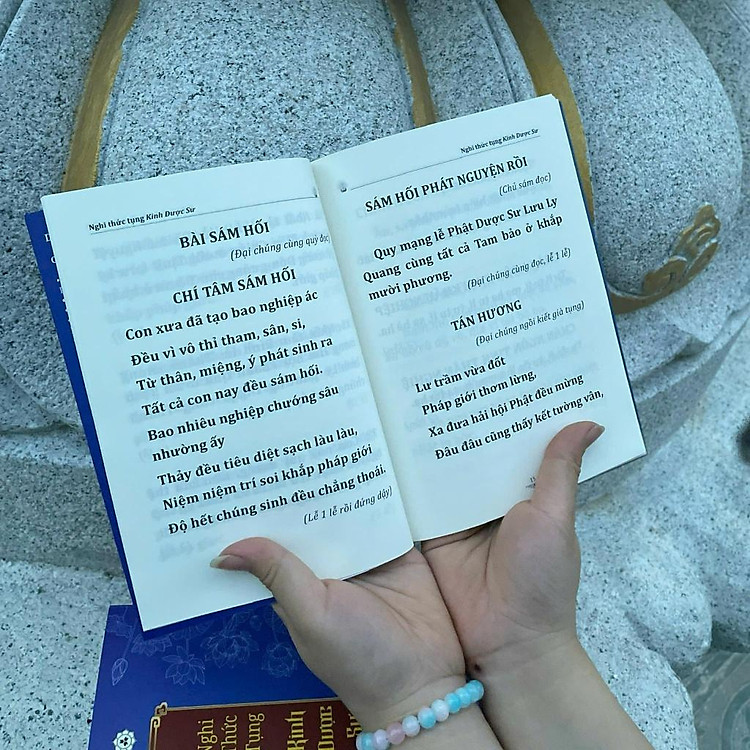 Nghi thức tụng Kinh Dược Sư
BÀI SÁM HỐI
(Đại chúng cùng quỳ đọc
CHÍ TÂM SÁM HỐI
Con xưa đã tạo bao nghiệp ác
Đều vì vô thỉ tham, sân, si,
Từ thân, miệng, ý phát sinh ra
Tất cả con nay đều sám hối.
Bao nhiêu nghiệp chướng sâu
nhường ấy
Thảy đều tiêu diệt sạch làu làu,
Niệm niệm trí soi khắp pháp giới
Độ hết chúng sinh đều chẳng thoái.
(Lễ 1 lễ rồi đứng dậy)
Nghi thức tụng Kinh Dược Sư
SÁM HỐI PHÁT NGUYỆN RỒI
(Chủ sám đọc)
Quy mạng lễ Phật Dược Sư Lưu Ly
Quang cùng tất cả Tam bảo ở khắp
mười phương.
(Đại chúng cùng đọc, lễ 1 lễ)
TÁN HƯƠNG
(Đại chúng ngồi kiết già tụng)
Lư trầm vừa đốt
Pháp giới thơm lừng,
Xa đưa hải hội Phật đều mừng
Đâu đâu cũng thấy kết tường vân,
Nghi
Thức
Tụng
Kinh